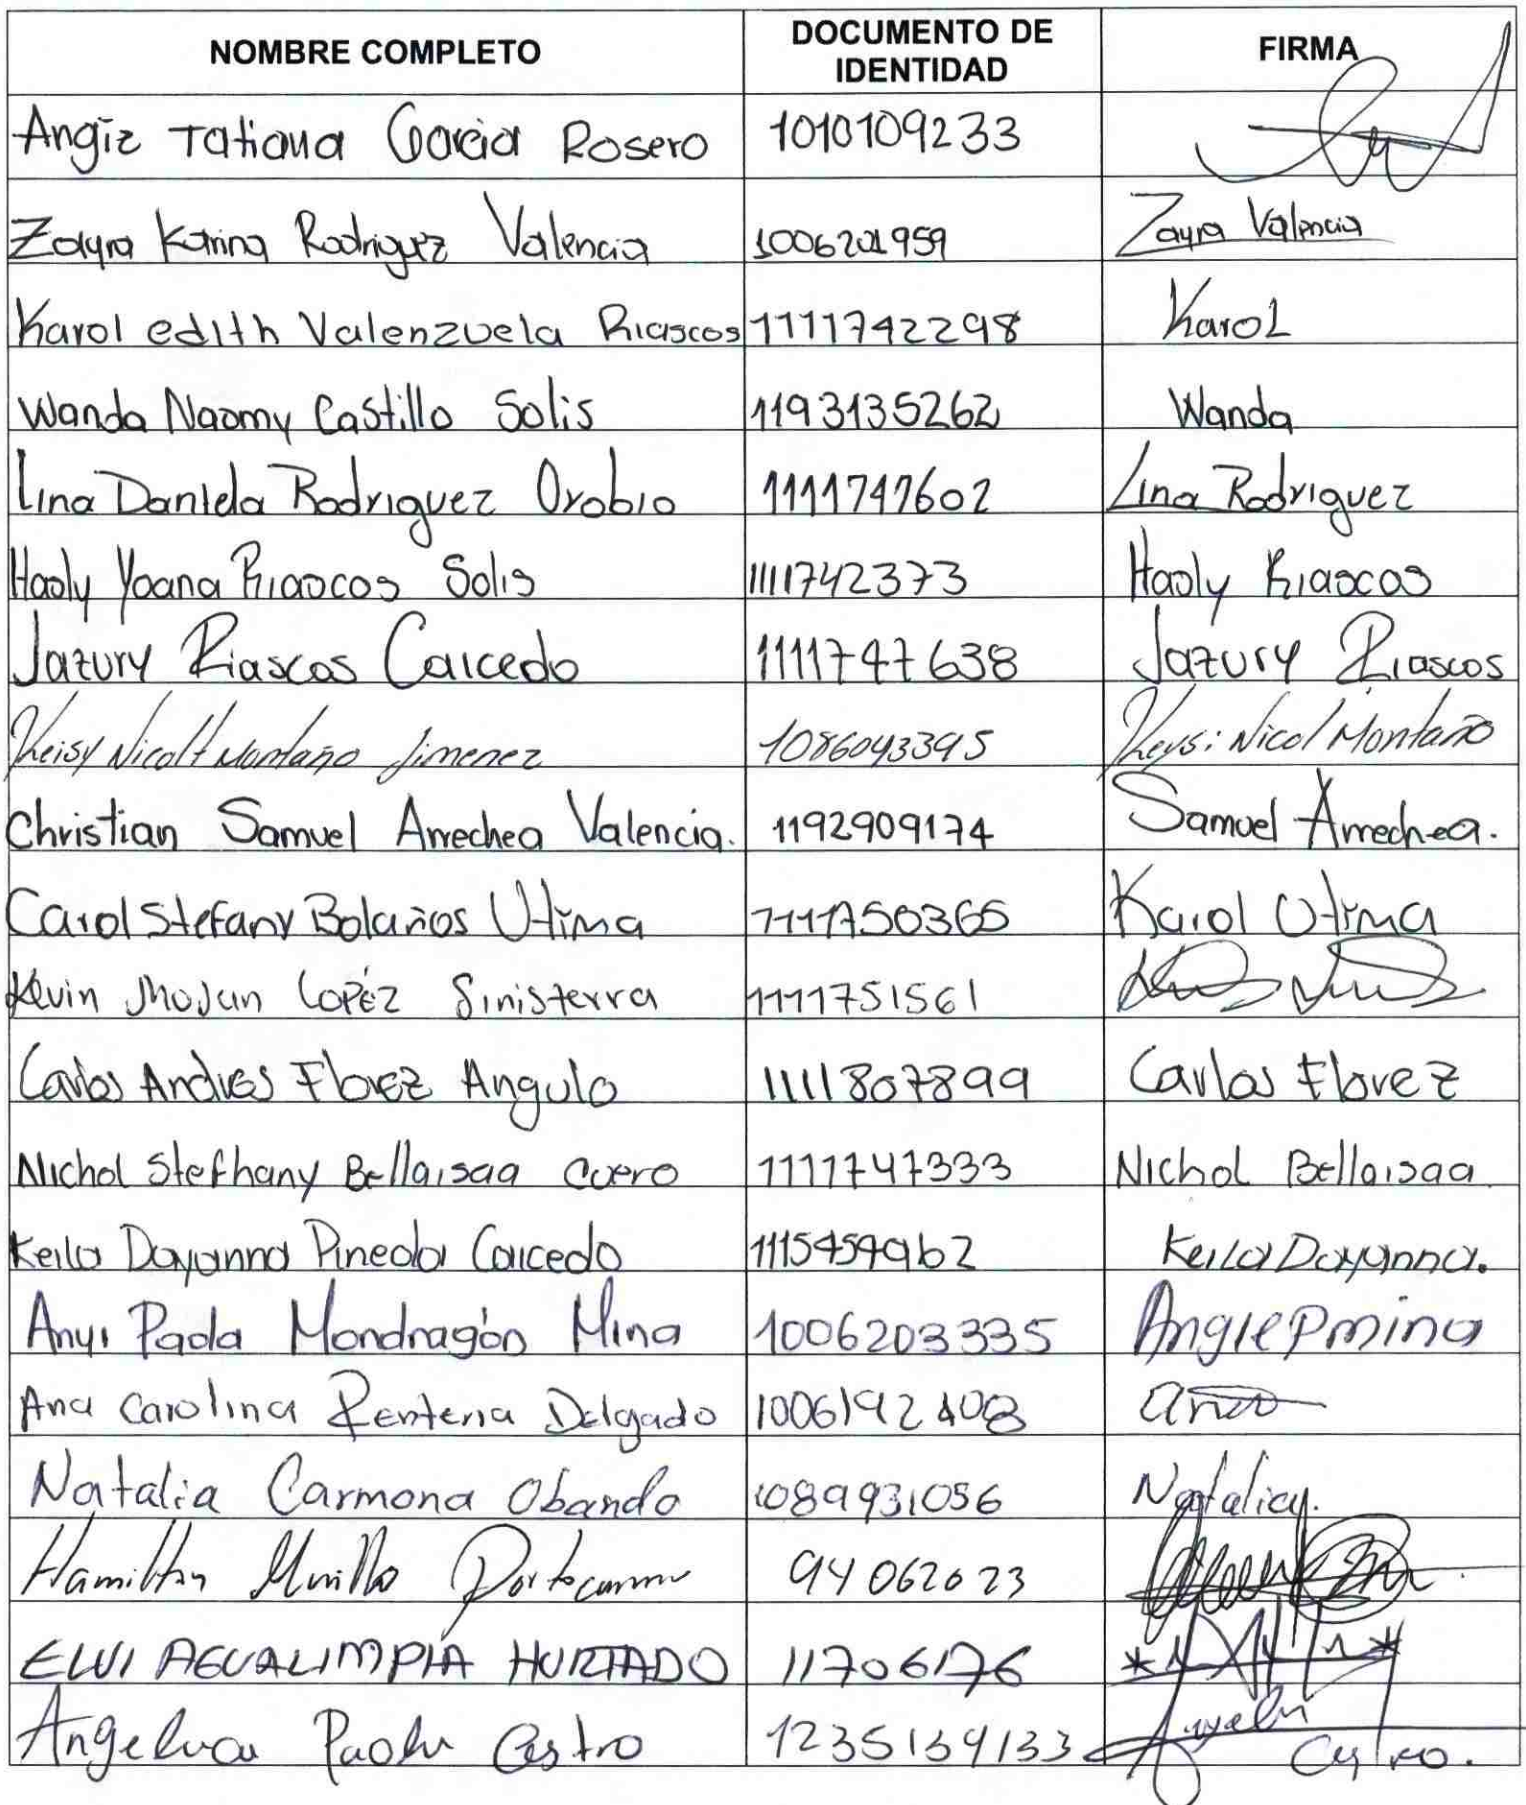 NOMBRE COMPLETO DOCUMENTO DE IDENTIDAD FIRMA
Angie Tatiana Garcia Rosero 1010109233
Zayra Karina Rodriguez Valencia 1006201959 Zayra Valencia
Karol edith Valenzuela Riascos 1111742298 Karol
Wanda Naomy Castillo Solis 1193135262 Wanda
Lina Daniela Rodriguez Orobio 1111747602 Lina Rodriguez
Haoly Yoana Riascos Solis 1111742373 Haoly Riascos
Jazury Riascos Caicedo 1111747638 Jazury Riascos
Keisy Nicolt Montaño Jimenez 1086043395 Keysi Nicol Montaño
Christian Samuel Arrechea Valencia. 1192909174 Samuel Arrechea.
Carol Stefany Bolaños Utima 1111750365 Karol Utima
Kevin Jhojan Lopéz Sinisterra 1111751561
Carlos Andres Florez Angulo 1111807899 Carlos Florez
Nichol Stefhany Bellaisaa Cuero 1111747333 Nichol Bellaisaa
Keila Dayanna Pineda Caicedo 1115454962 Keila Dayanna.
Anyi Paola Mondragón Mina 1006203335 Angiepmina
Ana Carolina Renteria Delgado 1006192408 ana
Natalia Carmona Obando 1089931056 Natalia.
Hamilton Murillo Portocarrero 94062023
ELVI AGUALIMPIA HURTADO 11706176
Angelica Paola Castro 1235139133 Angelica Castro.